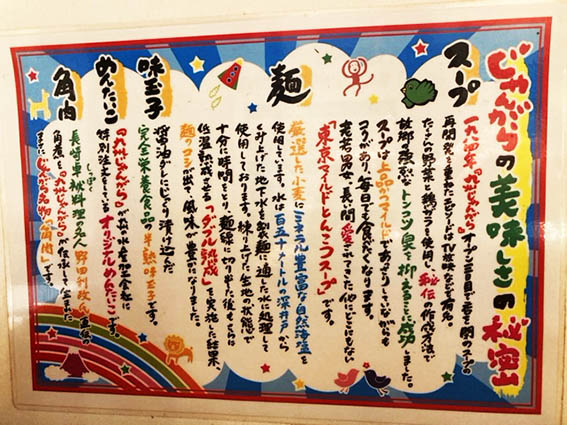 じゃんがらの美味しさの秘密
スープ
一九八四年『九州じゃんがら』オープン三日目で
スープの
再開発を重ねたエピソードはTV放映などで有名。
たくさんの野菜と鶏ガラを使用し、秘伝の作成方法で
故郷の強烈なトンコツ臭を抑えることに成功しました。
スープは上品かつマイルドであっさりしていながらも
コクがあり、毎日でも食べたくなります。
老若男女、長い間愛されてきた他にどこにもない
「東京マイルドとんこつスープ」です。
麺
厳選した小麦にミネラル豊富な自然海塩を
使用しています。水は百五十メートルの深井戸から
くみ上げた地下水を製麺に適した水に処理して
使用しております。練り上げた生地の状態で
十分に時間をとり、麺線に切り出した後もさらに
低温熟成させる「ダブル熟成」を実施した結果、
麺のコシが出て、風味が豊かになりました。
味玉子
醤油ダレにじっくり漬け込だ
完全栄養食品の半熟味玉子です。
めんたいこ
『九州じゃんがら』が
水産加工会社に
特別注文をしているオリジナルめんたいこです。
角肉
長崎卓袱料理の名人野田利政氏直伝の
しっぽく
角煮を『九州じゃんがら』が伝承して生まれた
まさにじゃんがら名物「角肉」です。